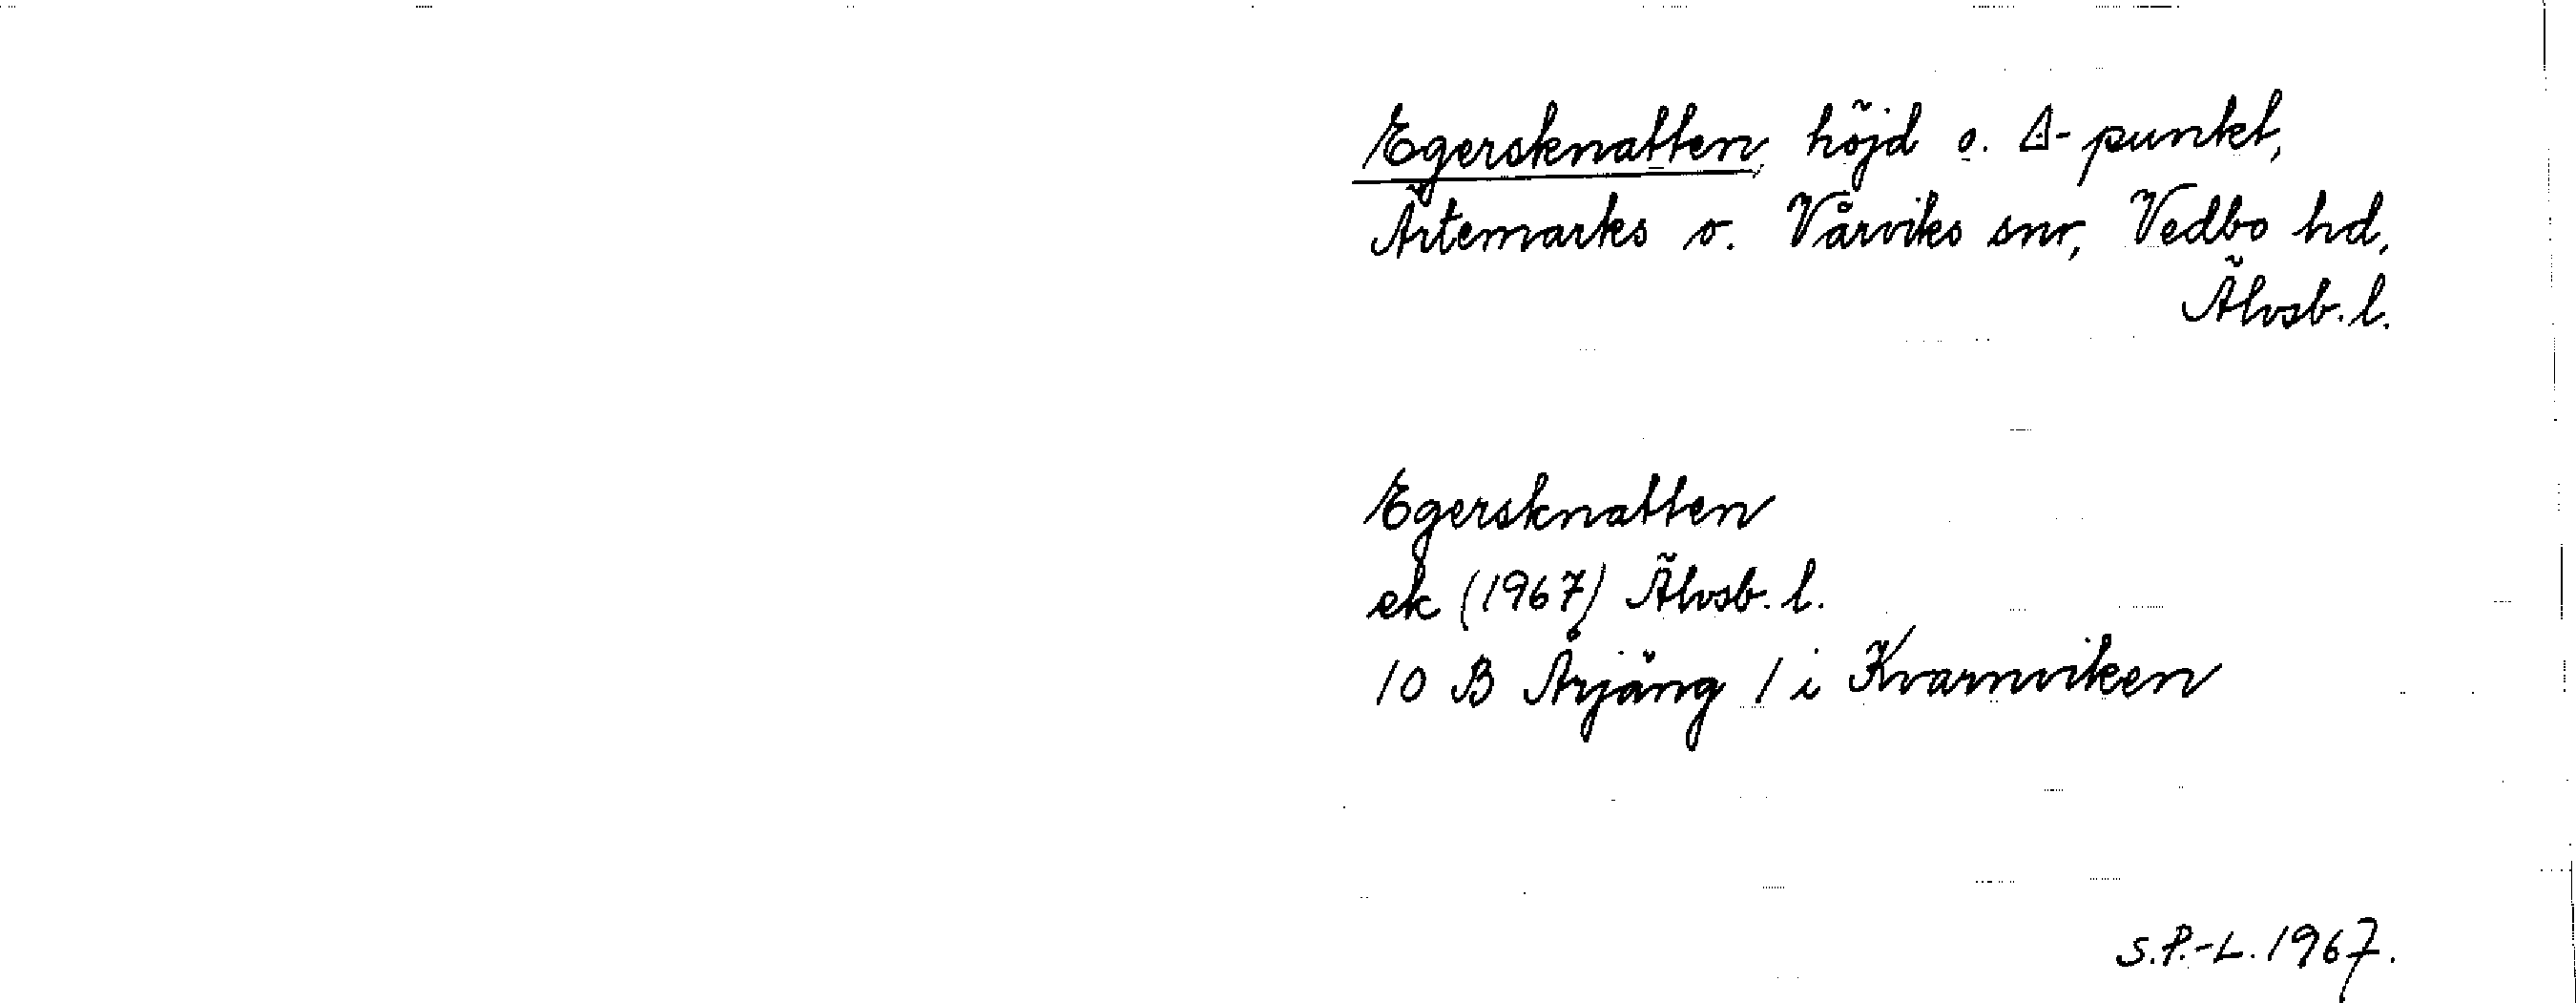 Egersknatten, höjd o. ∆-punkt,
Ärtemarks o. Vårviks snr, Vedbo hd,
Älvsb. l.
Egersknatten
ek (1967) Älvsb. l.
10 B Årjäng 1 i Kvarnviken
S.P.-L. 1967.